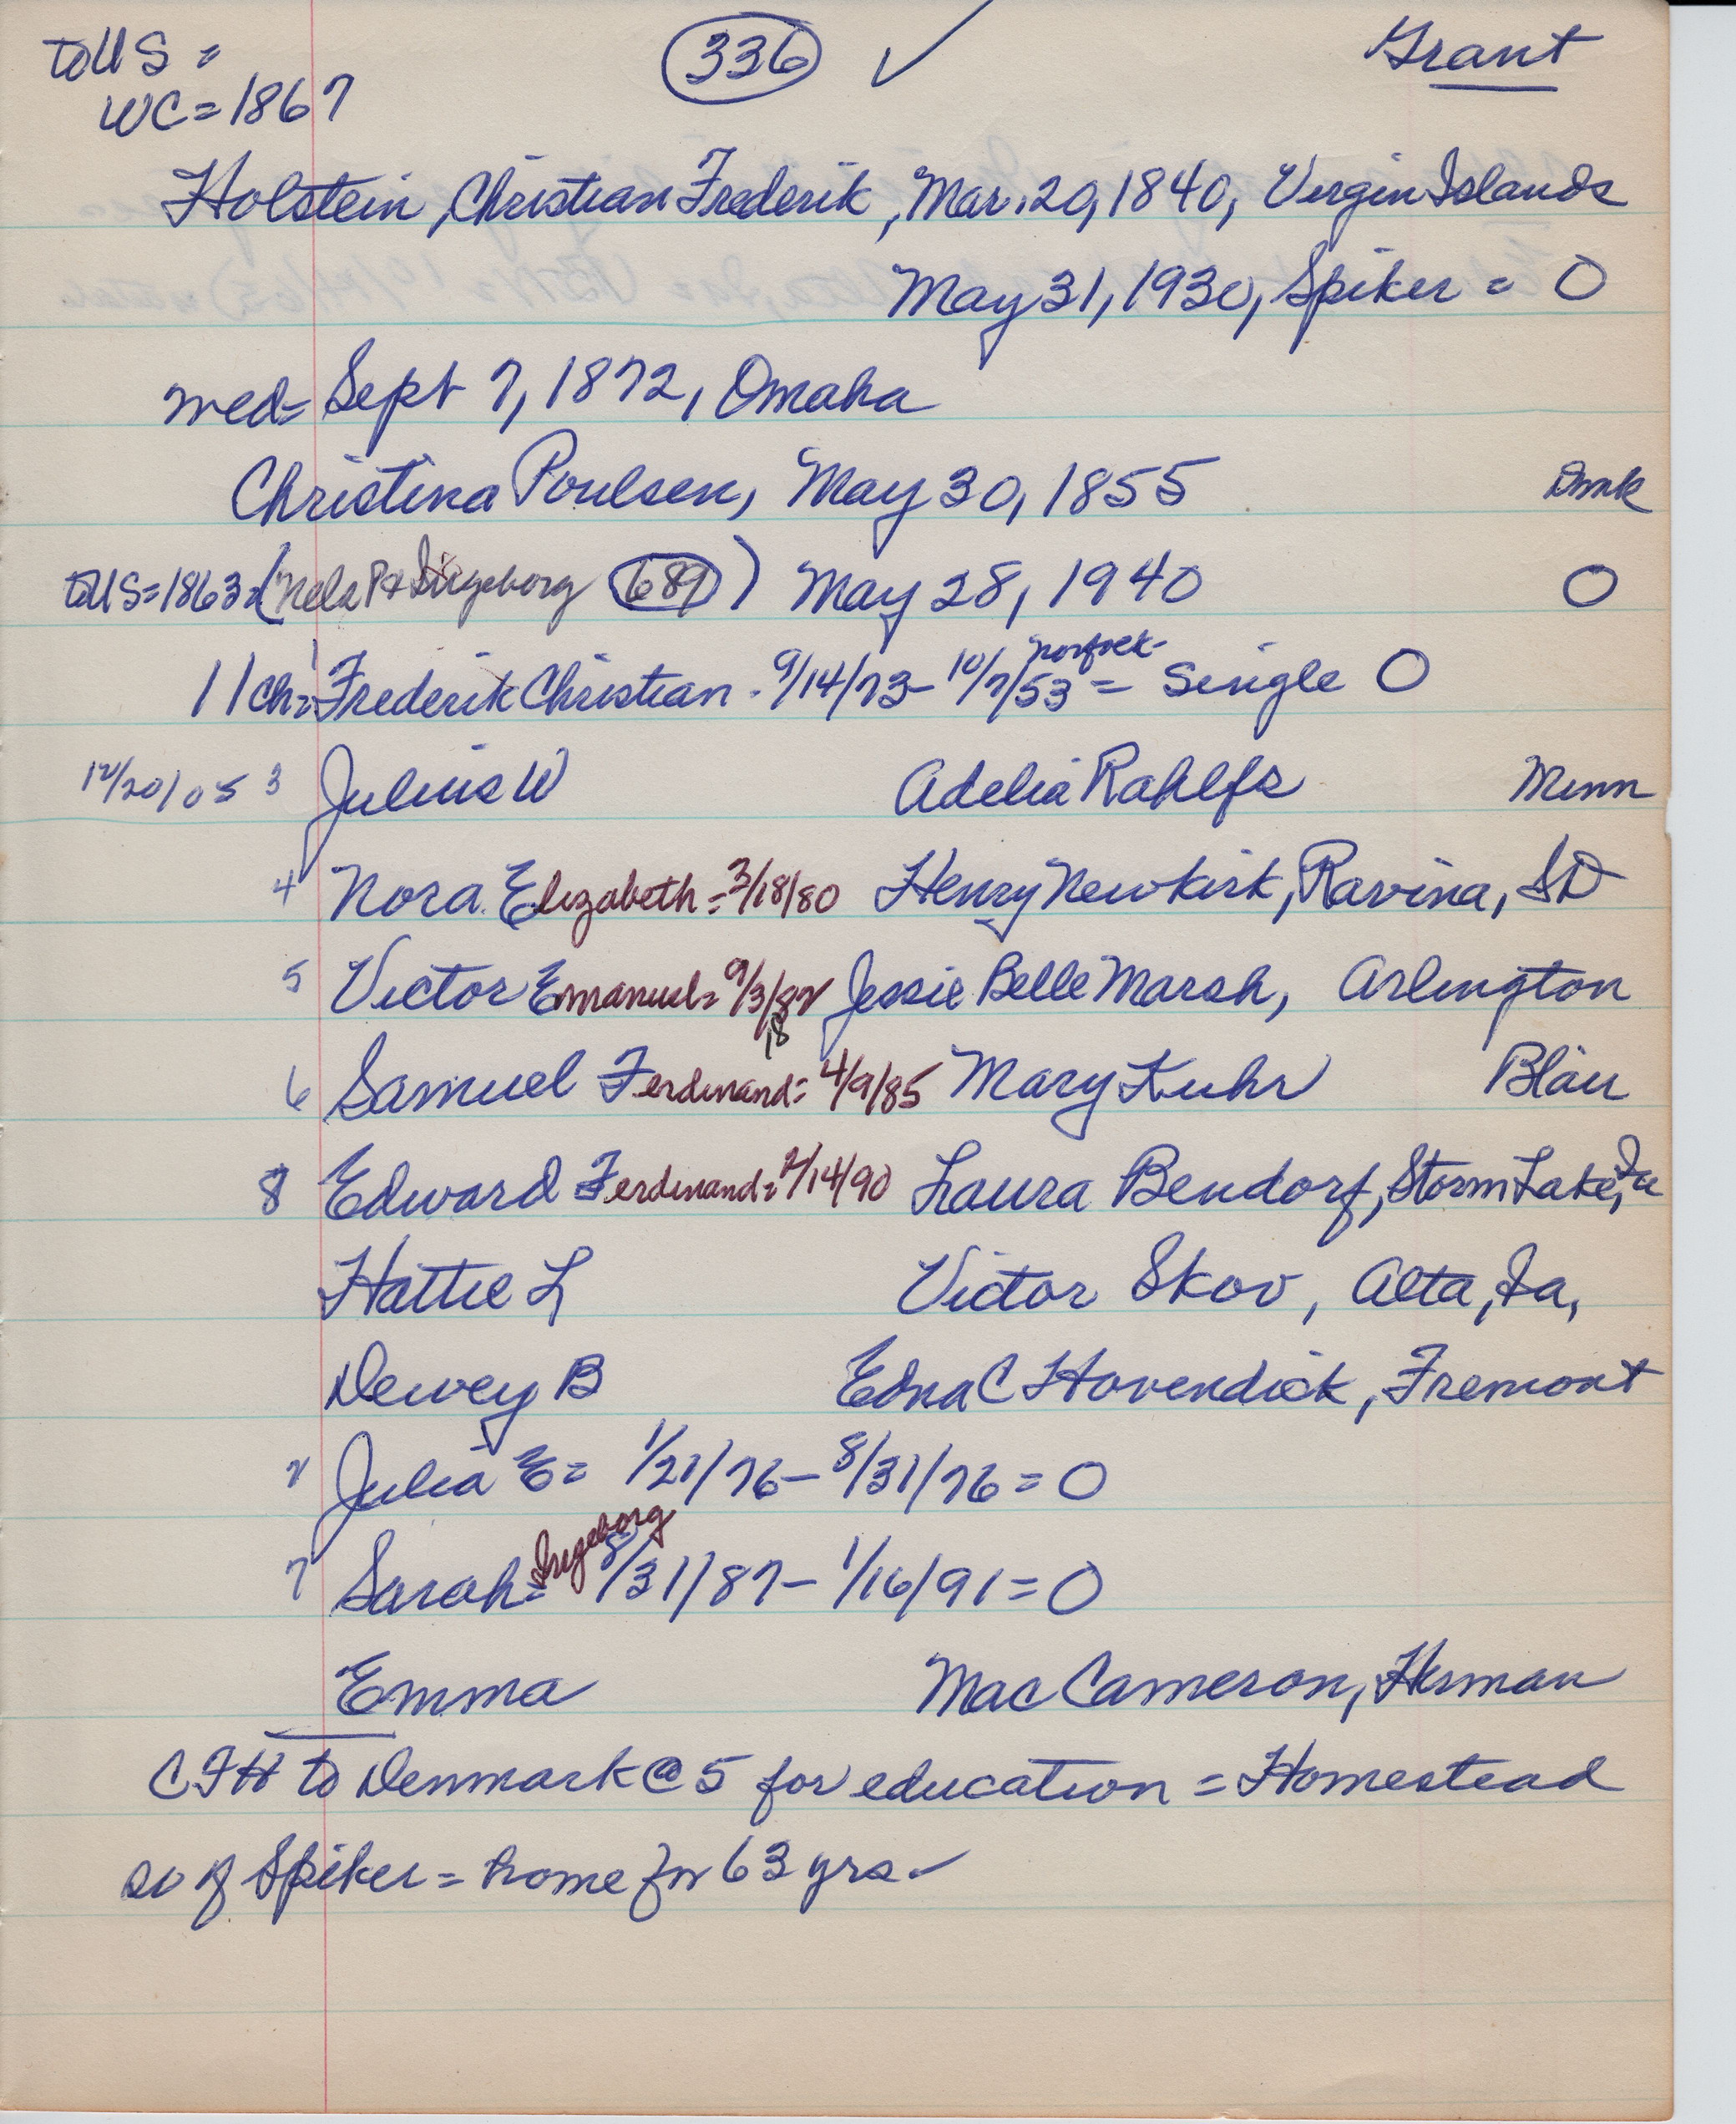 to US =
336 ✓ Grant
WC = 1867
Holstein, Christian Frederik, Mar. 20, 1840, Virgin Islands
May 31, 1930, Spiker = O
med= Sept 7, 1872, Omaha
Christina Poulsen, May 30, 1855 Dmk
to US=1863= (Nels P & Ingeborg 689) May 28, 1940 O
11 ch= 1 Frederik Christian - 9/14/73 - 10/7/53 = Norfolk - Single O
12/20/05 3 Julius W Adelia Rahlfs Minn
4 Nora Elizabeth = 3/18/80 Henry Newkirk, Ravina, SD
5 Victor Emanuel = 9/3/82 Jessie Belle Marsh, Arlington
18
6 Samuel Ferdinand = 4/9/85 Mary Kuhr Blair
8 Edward Ferdinand = 2/14/90 Laura Bendorf, Storm Lake, Ia
Hattie L Victor Skov, Alta, Ia,
Dewey B Edna C Hovendick, Fremont
2 Julia E = 1/21/76 - 8/31/76 = O
7 Sarah = Ingeborg 8/31/87 - 1/16/91 = O
Emma Mac Cameron, Herman
CFH to Denmark @ 5 for education = Homestead
so of Spiker = home for 63 yrs -